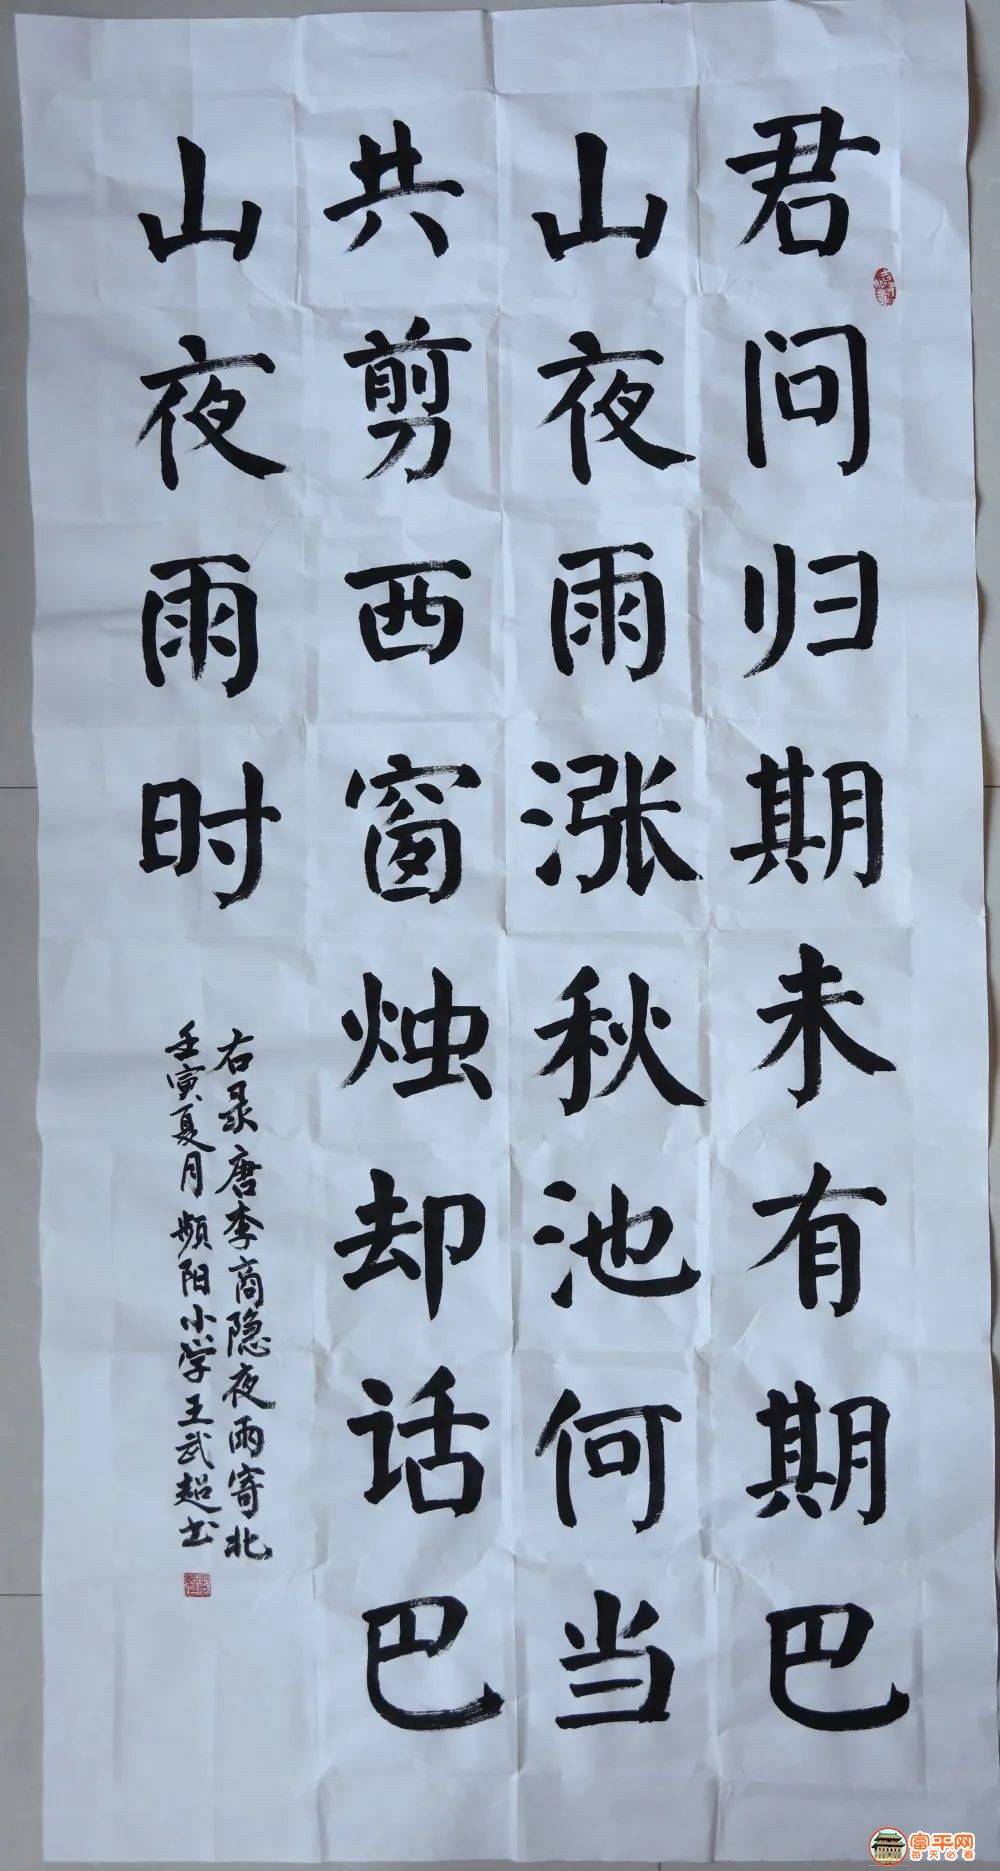 君问归期未有期巴
山夜雨涨秋池何当
共剪西窗烛却话巴
山夜雨时
右录唐李商隐夜雨寄北
壬寅夏月频阳小学王武超书
富平网
每天必看